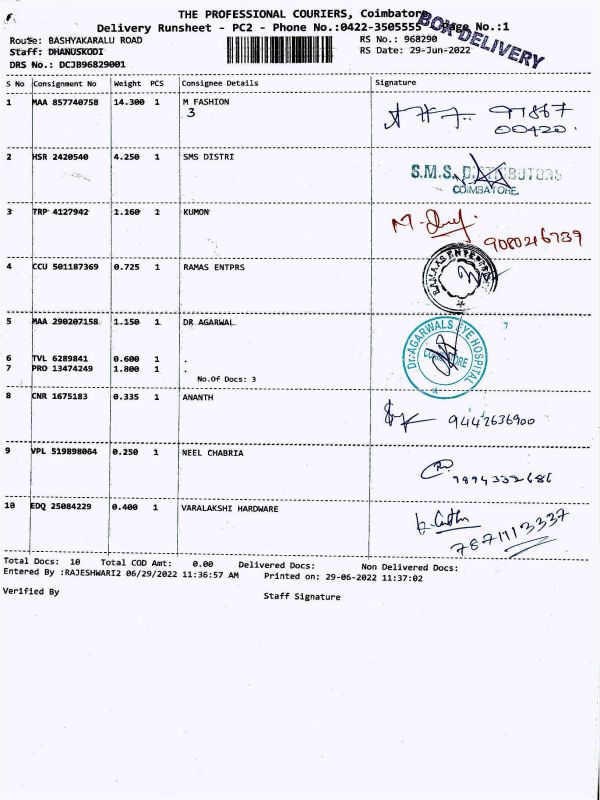 THE PROFESSIONAL COURIERS, Coimbatore
Delivery Runsheet - PC2 - Phone No.:0422-3505555 Page No.:1
BOX DELIVERY
Route: BASHYAKARALU ROAD
RS No.: 968290
Staff: DHANUSKODI
RS Date: 29-Jun-2022
DRS No.: DCJB96829001
S No Consignment No Weight PCS Consignee Details Signature
1 MAA 857740758 14.300 1 M FASHION
3
97867
00420.
2 HSR 2420540 4.250 1 SMS DISTRI
S.M.S. DISTRIBUTORS
COIMBATORE.
3 TRP 4127942 1.160 1 KUMON
9080216739
4 CCU 501187369 0.725 1 RAMAS ENTPRS
5 MAA 290207158 1.150 1 DR AGARWAL
Dr. AGARWALS EYE HOSPITAL
COIMBATORE
6 TVL 6289841 0.600 1 .
7 PRO 13474249 1.800 1 .
No.Of Docs: 3
8 CNR 1675183 0.335 1 ANANTH
9442636900
9 VPL 519898064 0.250 1 NEEL CHABRIA
9894332686
10 EDQ 25084229 0.400 1 VARALAKSHI HARDWARE
7871113337
Total Docs: 10 Total COD Amt: 0.00 Delivered Docs: Non Delivered Docs:
Entered By :RAJESHWARI2 06/29/2022 11:36:57 AM Printed on: 29-06-2022 11:37:02
Verified By
Staff Signature